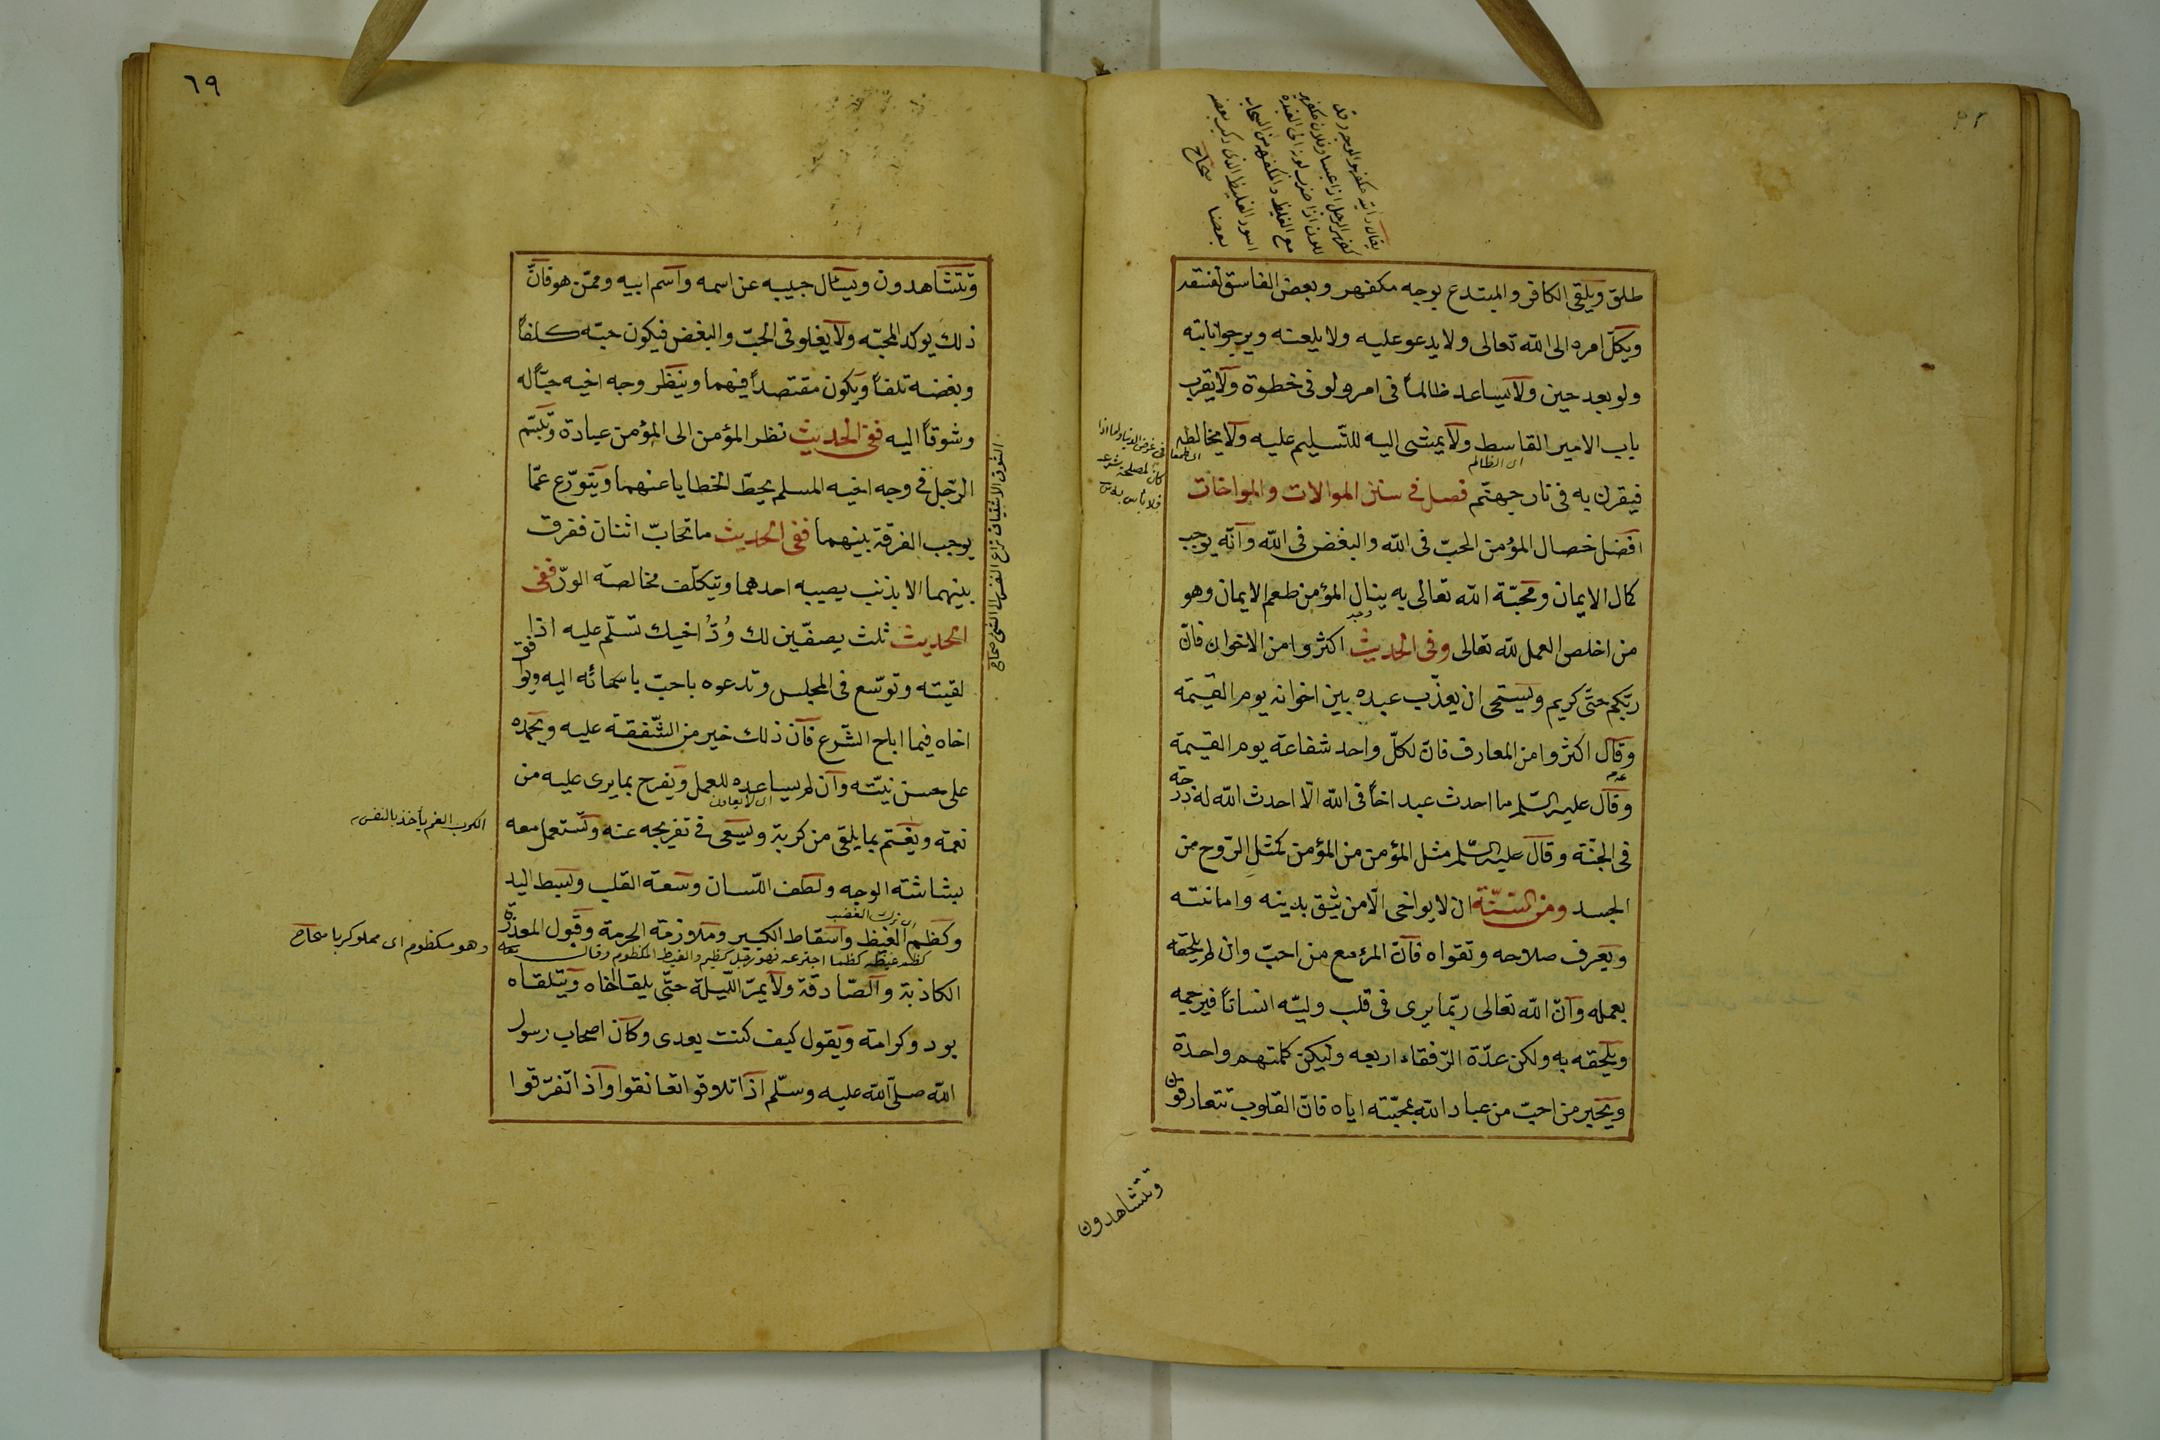 طلق ويلقى الكافر والمبتدع بوجه مكفهر وبعض الفاسق لفسقه
ويكل امره الى الله تعالى ولا يدعو عليه ولا يلعنه ويرجو انابته
ولو بعد حين ولا يساعد ظالماً فى امر ولو فى خطوة ولا يقرب
باب الامير القاسط ولا يمشى اليه للتسليم عليه ولا يخالطه
اى الظالم
فيقرن به فى نار جهنم فصل فى سنن الموالات والمواخات
افضل خصال المؤمن الحبّ فى الله والبغض فى الله وانّه يوجب
كمال الايمان ومحبّة الله تعالى به ينال المؤمن طعم الايمان وهو
من اخلص العمل لله تعالى وفى الحديث اكثروا من الاخوان فانّ
ربّكم حيّى كريم ويستحى ان يعذّب عبده بين اخوانه يوم القيمة
وقال اكثروا من المعارف فانّ لكلّ واحد شفاعة يوم القيمة
وقال عليه السّلم ما احدث عبد اخاً فى الله الّا احدث الله له درجة
فى الجنّة وقال عليه السّلم مثل المؤمن من المؤمن كمثل الرّوح من
الجسد ومن السّنّة ان لا يواخى الّا من يثق بدينه وامانته
ويعرف صلاحه وتقواه فانّ المرء مع من احبّ وان لم يلحقه
بعمله وانّ الله تعالى ربّما يرى فى قلب وليّه انساناً فيرحمه
ويلحقه به ولكن عدّة الرّفقاء اربعه وليكن كلمتهم واحدة
ويخبر من احبّ من عباد الله بمحبّته اياه فانّ القلوب تتعارفون
وتتشاهدون
٦٩
وتتشاهدون ويسٔال حبيبه عن اسمه واسم ابيه وممّن هو فانّ
ذلك يوكد المحبّه ولا يغلو فى الحبّ والبغض فيكون حبّه كلفاً
وبغضه تلفاً ويكون مقتصداً فيهما وينظر وجه اخيه حبّاً له
وشوقاً اليه ففى الحديث نظر المؤمن الى المؤمن عبادة وتبسّم
الرّجل فى وجه اخيه المسلم يحطّ الخطايا عنهما ويتورّع عمّا
يوجب الفرقة بينهما ففى الحديث ما تحابّ اثنان ففرق
بينهما الا بذنب يصيبه احدهما ويتكلّف مخالصة الودّ ففى
الحديث ثلث يصفّين لك وُدّ اخيك تسلّم عليه اذا
لقيته وتوسّع فى المجلس وتدعوه باحبّ باسمائه اليه ويوافق
اخاه فيما اباح الشّرع فانّ ذلك خير من الشّفقة عليه ويحمده
على حسن نيّته وان لم يساعده للعمل ويفرح بما يرى عليه من
اى لا يعاون
نعمة ويغتم بما يلقى من كربة ويسعى فى تفريجه عنه ويستعمل معه
الكرب الغم يأخذ بالنفس
بشاشته الوجه ولطف اللّسان وسعة القلب وبسط اليد
ترك الغضب
وكظم الغيظ واسقاط الكبير وملازمة الحرمة وقبول المعذرة
كظم غيظه كظما اجترعه فهو رجل كظيم والغيظ المكظوم وقال تعالى
وهو مكظوم اى مملو كربا صحاح
الكاذبة والصّادقة ولا يمرّ اللّيلة حتّى يلقا اخاه ويتلقاه
بود وكرامة ويقول كيف كنت بعدى وكان اصحاب رسول
الله صلّى الله عليه وسلّم اذا تلاقوا تعانقوا واذا تفرّقوا